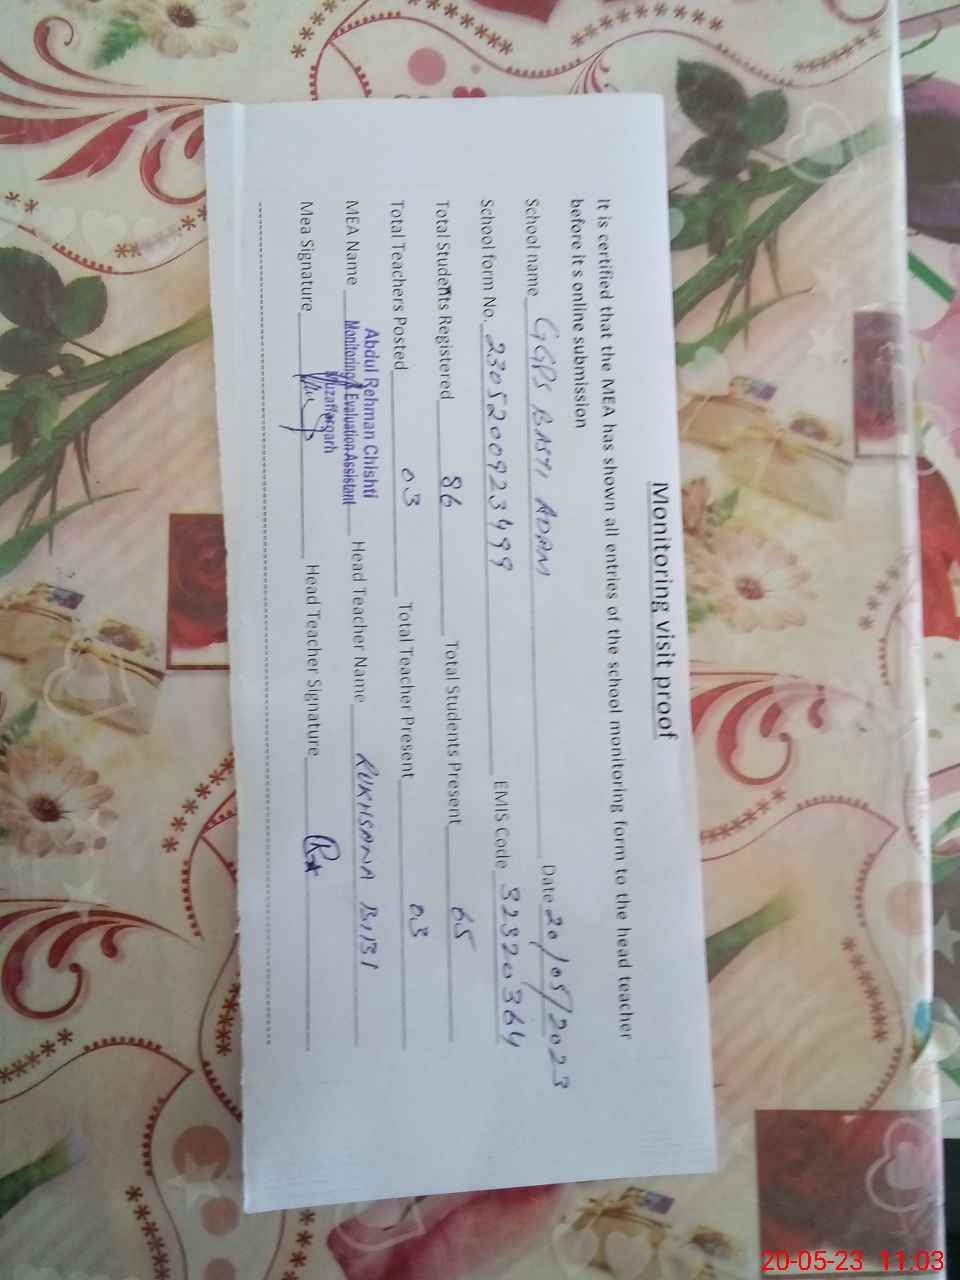 Monitoring visit proof
It is certified that the MEA has shown all entries of the school monitoring form to the head teacher
before it s online submission
School name GGPS BASTI ADAM Date 20/05/2023
School form No. 2305200923499 EMIS Code 32320364
Total Students Registered 86 Total Students Present 65
Total Teachers Posted 03 Total Teacher Present 03
Abdul Rehman Chishti
MEA Name Monitoring & Evaluation Assistant Head Teacher Name RUKHSANA BIBI
Muzaffargarh
Mea Signature Head Teacher Signature
20-05-23 11:03